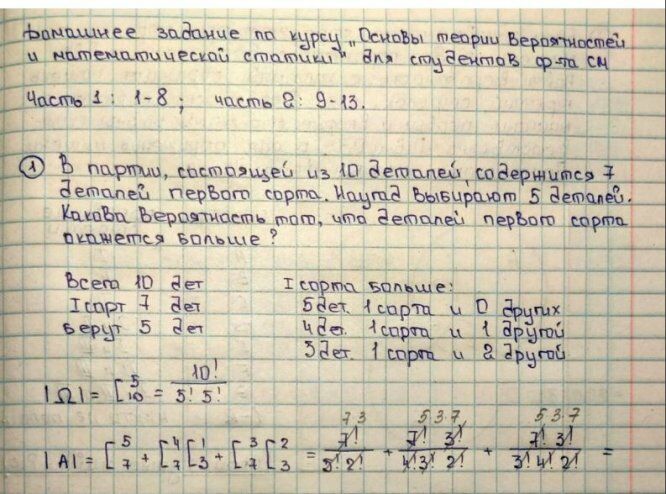 Домашнее задание по курсу „Основы теории вероятностей
и математической статики" для студентов ф-та СМ
Часть 1: 1-8; часть 2: 9-13.
① В партии, состоящей из 10 деталей, содержится 7
деталей первого сорта. Наугад выбирают 5 деталей.
Какова вероятность того, что деталей первого сорта
окажется больше?
Всего 10 дет I сорта больше:
I сорт 7 дет 5 дет. 1 сорта и 0 других
Берут 5 дет 4 дет. 1 сорта и 1 другой
3 дет. 1 сорта и 2 другой
|Ω| = C_10^5 = 10! / (5! 5!)
7 3 5 3 7 5 3 7
|A| = C_7^5 + C_7^4 C_3^1 + C_7^3 C_3^2 = 7! / (5! 2!) + 7! 3! / (4! 3! 2!) + 7! 3! / (3! 4! 2!) =